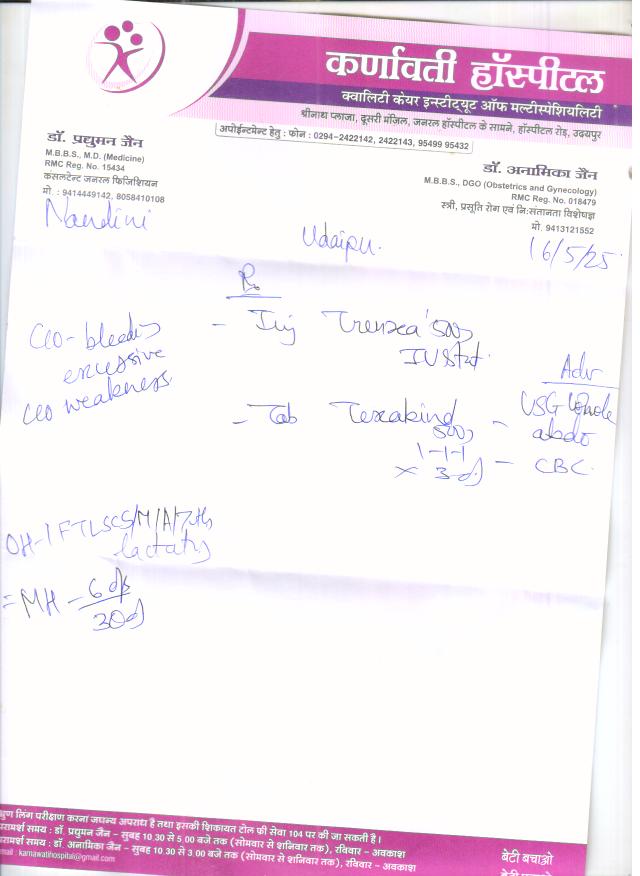 कर्णावती हॉस्पीटल
क्वालिटी केयर इन्स्टीट्यूट ऑफ मल्टीस्पेशियलिटी
श्रीनाथ प्लाजा, दूसरी मंजिल, जनरल हॉस्पीटल के सामने, हॉस्पीटल रोड़, उदयपुर
अपोईन्टमेन्ट हेतु : फोन : 0294-2422142, 2422143, 95499 95432
डॉ. प्रद्युमन जैन
M.B.B.S., M.D. (Medicine)
RMC Reg. No. 15434
कंसलटेन्ट जनरल फिजिशियन
मो. : 9414449142, 8058410108
डॉ. अनामिका जैन
M.B.B.S., DGO (Obstetrics and Gynecology)
RMC Reg. No. 018479
स्त्री, प्रसूति रोग एवं नि:संतानता विशेषज्ञ
मो. 9413121552
Nandini
Udaipur.
16/5/25
Rx
C/O - bleeding
excessive
C/O weakness
- Inj 500
IV Stat
- Tab 500
1-1-1
x 3 d
Adv
- USG whole
abdo
- CBC
OH - 1 FTLSCS/M/A/7
lactating
= MH - 6 ds
30d
भ्रुण लिंग परीक्षण करना जघन्य अपराध है तथा इसकी शिकायत टोल फ्री सेवा 104 पर की जा सकती है।
परामर्श समय : डॉ. प्रद्युमन जैन - सुबह 10.30 से 5.00 बजे तक (सोमवार से शनिवार तक), रविवार - अवकाश
परामर्श समय : डॉ. अनामिका जैन - सुबह 10.30 से 3.00 बजे तक (सोमवार से शनिवार तक), रविवार - अवकाश
mail : karnawatihospital@gmail.com
बेटी बचाओ